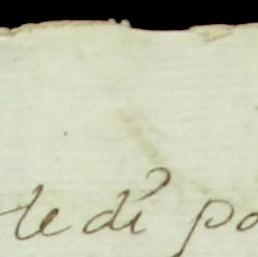 te di po